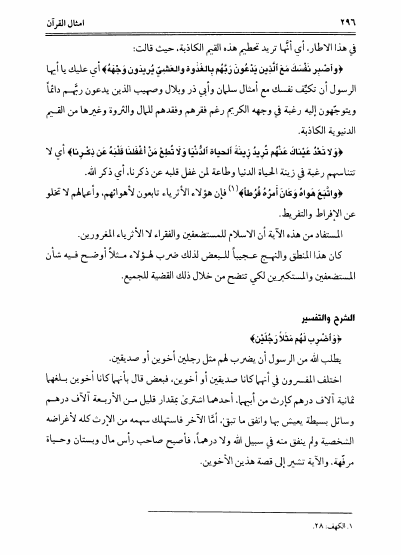 ٢٩٦
امثال القرآن
في هذا الاطار، أي أنّها تريد تحطيم هذه القيم الكاذبة، حيث قالت:
﴿وَٱصْبِر نَفْسَكَ مَعَ ٱلَّذِين يَدْعُونَ رَبَّهُم بِالغَدْوة والعَشيّ يُريدون وَجْهَهُ﴾ أي عليك يا أيها
الرسول أن تكيّف نفسك مع أمثال سلمان وأبي ذر وبلال وصهيب الذين يدعون ربّهم دائماً
ويتوجّهون إليه رغبة في وجهه الكريم رغم فقرهم وفقدهم للمال والثروة وغيرها من القيم
الدنيوية الكاذبة.
﴿وَلا تَعْدُ عَيْناكَ عَنْهُم تُرِيدُ زِينَةَ ٱلحياة ٱلدُّنْيا وَلَا تُطِعْ مَنْ أغْفَلنَا قَلْبَهُ عَن ذِكْرِنا﴾ أي لا
تتناسهم رغبة في زينة الحياة الدنيا وطاعة لمن غفل قلبه عن ذكرنا، أي ذكر الله.
﴿واتَّبَعَ هَواهُ وَكانَ أمْرُهُ فُرُطاً﴾(١) فإن هؤلاء الأثرياء تابعون لأهوائهم، وأعمالهم لا تخلو
عن الإفراط والتفريط.
المستفاد من هذه الآية أن الاسلام للمستضعفين والفقراء لا الأثرياء المغرورين.
كان هذا المنطق والنهج عجيباً للبعض لذلك ضرب لهؤلاء مثلاً أوضح فيه شأن
المستضعفين والمستكبرين لكي تتضح من خلال ذلك القضية للجميع.
الشرح والتفسير
﴿وَٱضْرِب لَهُم مَثَلاً رَجُلَيْن﴾
يطلب الله من الرسول أن يضرب لهم مثل رجلين أخوين أو صديقين.
اختلف المفسرون في أنهما كانا صديقين أو أخوين، فبعض قال بأنهما كانا أخوين بلغهما
ثمانية آلاف درهم كإرث من أبيهما، أحدهما اشترى بمقدار قليل من الأربعة آلاف درهم
وسائل بسيطة يعيش بها وانفق ما تبقى، أمّا الآخر فاستهلك سهمه من الإرث كله لأغراضه
الشخصية ولم ينفق منه في سبيل الله ولا درهماً، فأصبح صاحب رأس مال وبستان وحياة
مرفّهة. والآية تشير إلى قصة هذين الأخوين.
١. الكهف: ٢٨.